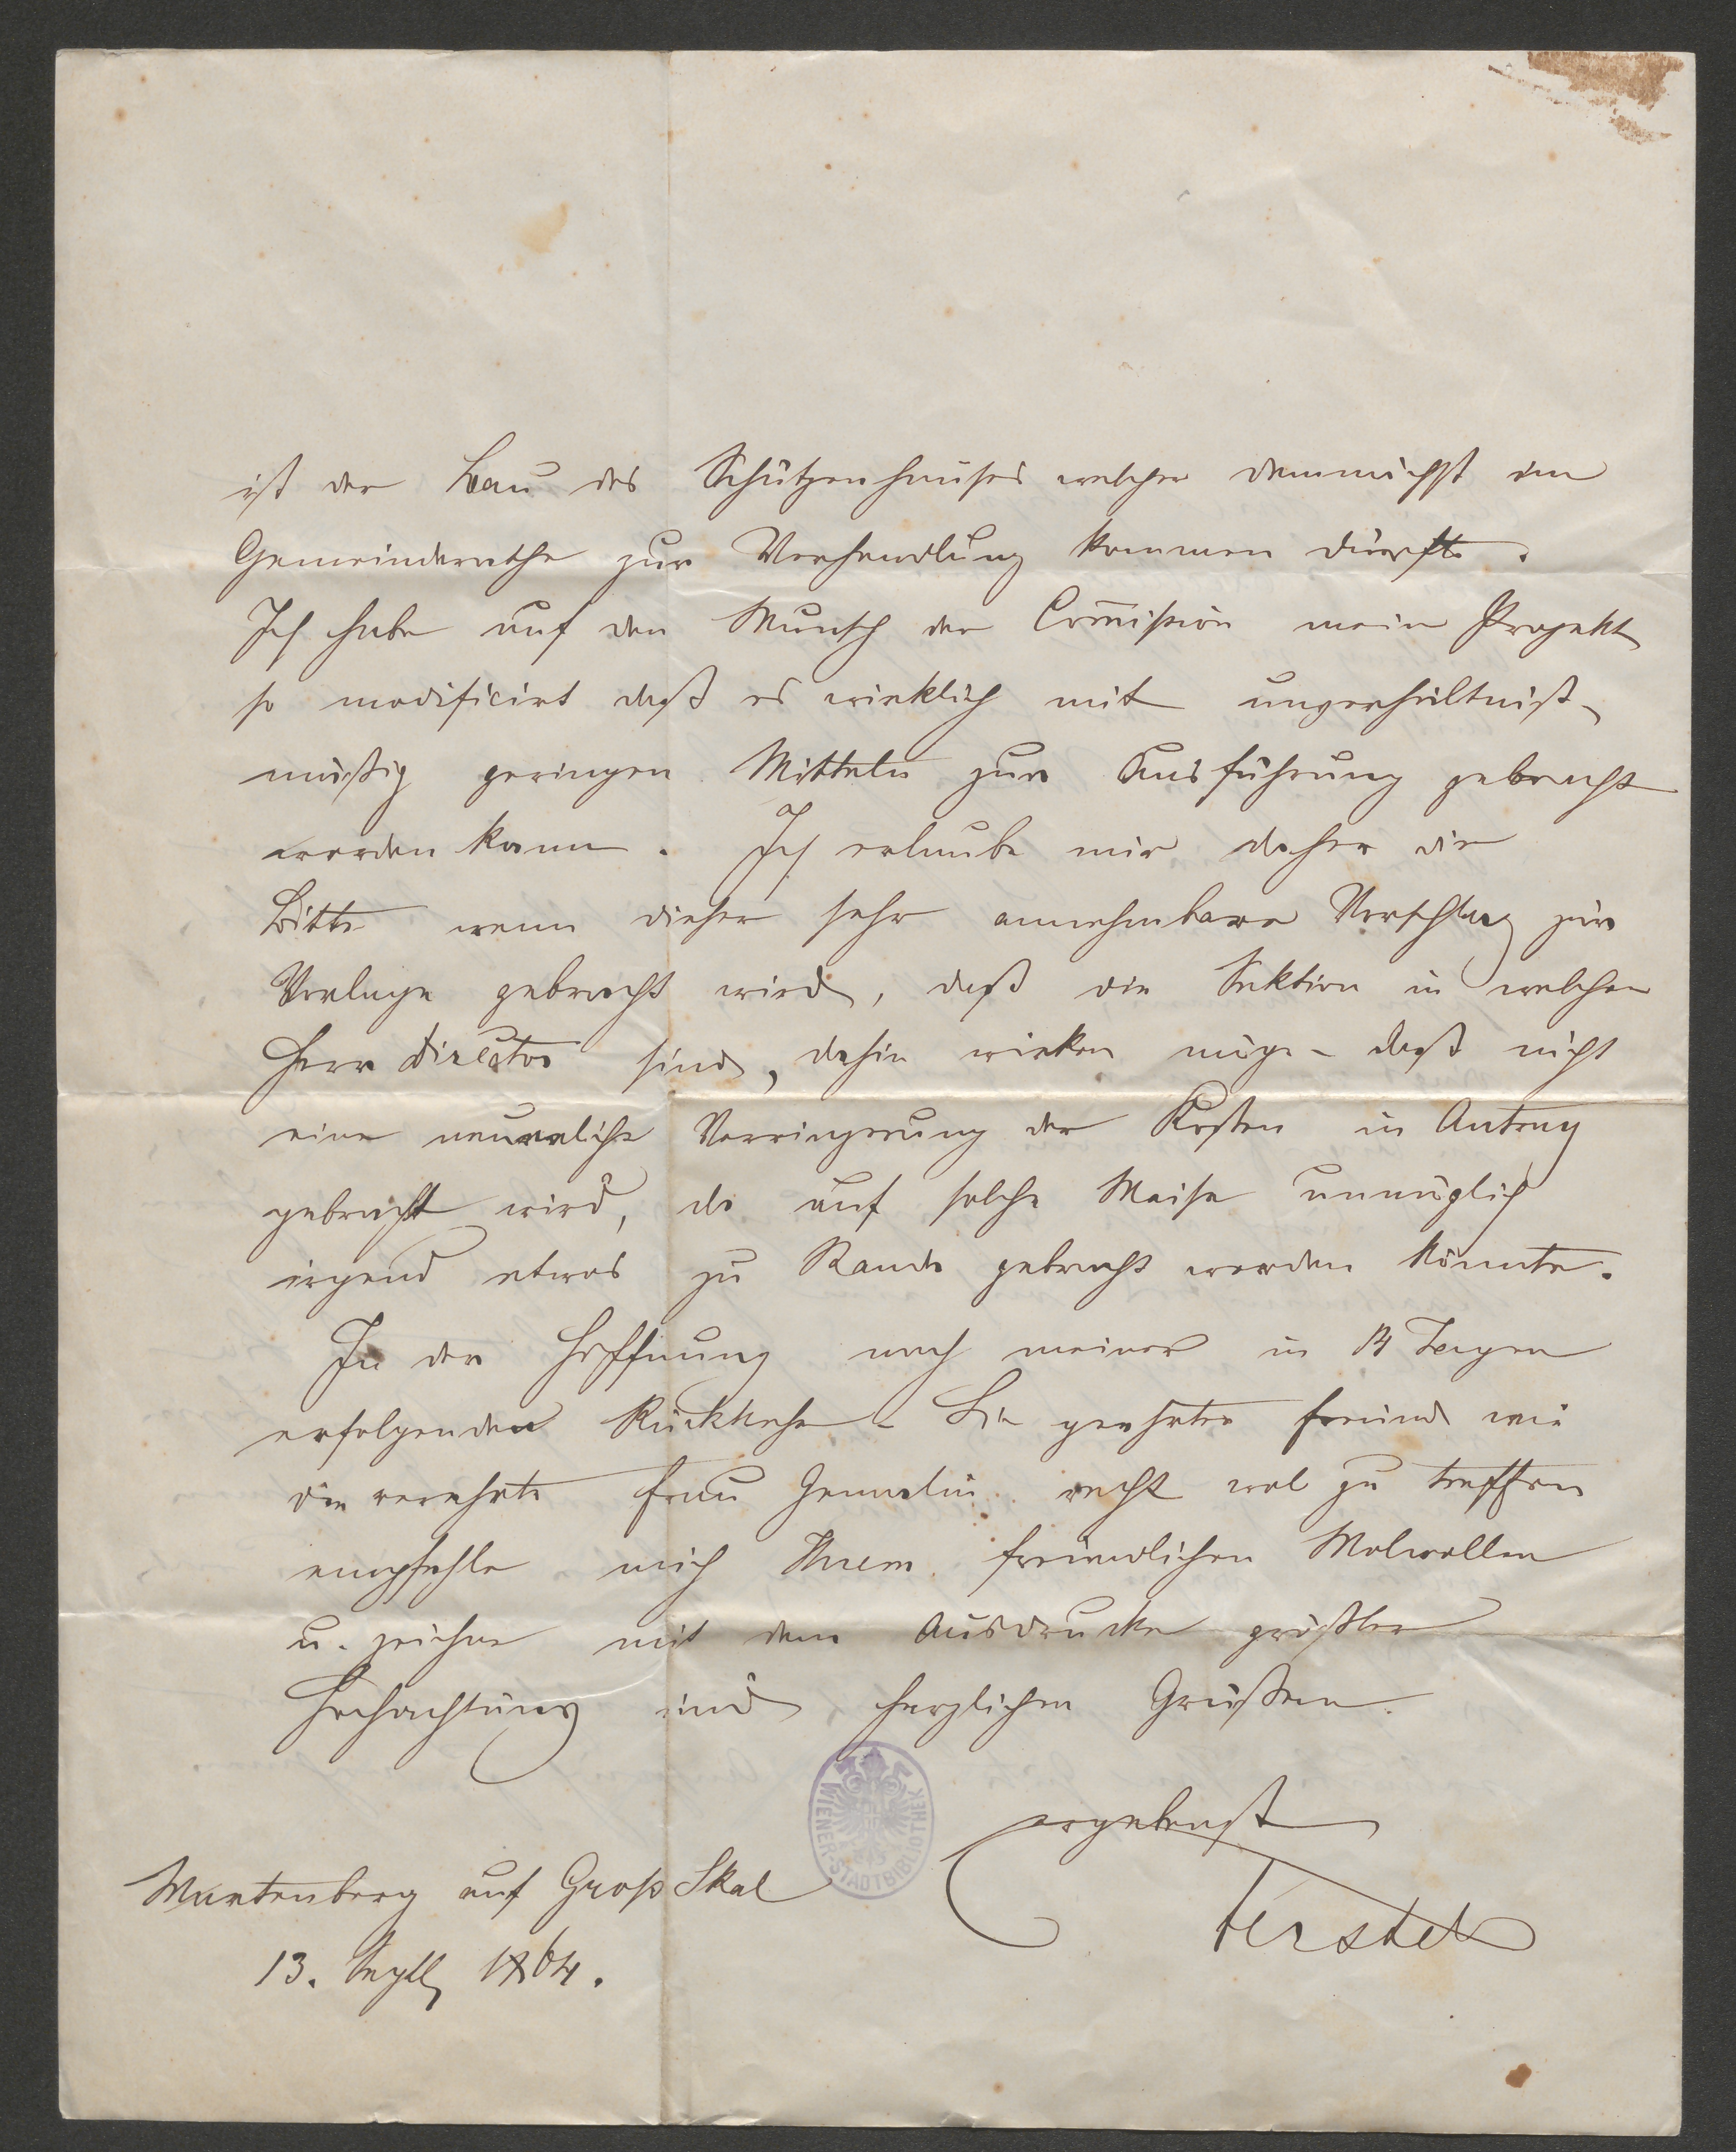 ist der Bau des Schützenhauses welcher demnächst im
Gemeinderathe zur Verhandlung kommen dürfte.
Ich habe auf den Wunsch der Com̅ission mein Projekt
so modificirt daß es wirklich mit unverhältniß-
mäßig geringen Mitteln zur Ausführung gebracht
werden kann. Ich erlaube mir daher die
Bitte wenn dieser sehr annehmbare Vorschlag zur
Vorlage gebracht wird, daß die Sektion in welcher
Herr Director sind, dahin wirken möge – daß nicht
eine neuerliche Verringerung der Kosten in Antrag
gebracht wird, da auf solche Weise unmöglich
irgend etwas zu Stande gebracht werden könnte.
In der Hoffnung nach meiner in 14 Tagen
erfolgenden Rückkehr – Sie geehrter Freund wie
die verehrte Frau Gemalin recht wol zu treffen
empfehle mich Ihrem freundlichen Wolwollen
u. zeichne mit dem Ausdrucke größter
Hochachtung und herzlichen Grüßen.
ergebenst
Ferstel
Wartenberg auf Groß Skal
13. Septb 1864.
WIENER-STADTBIBLIOTHEK